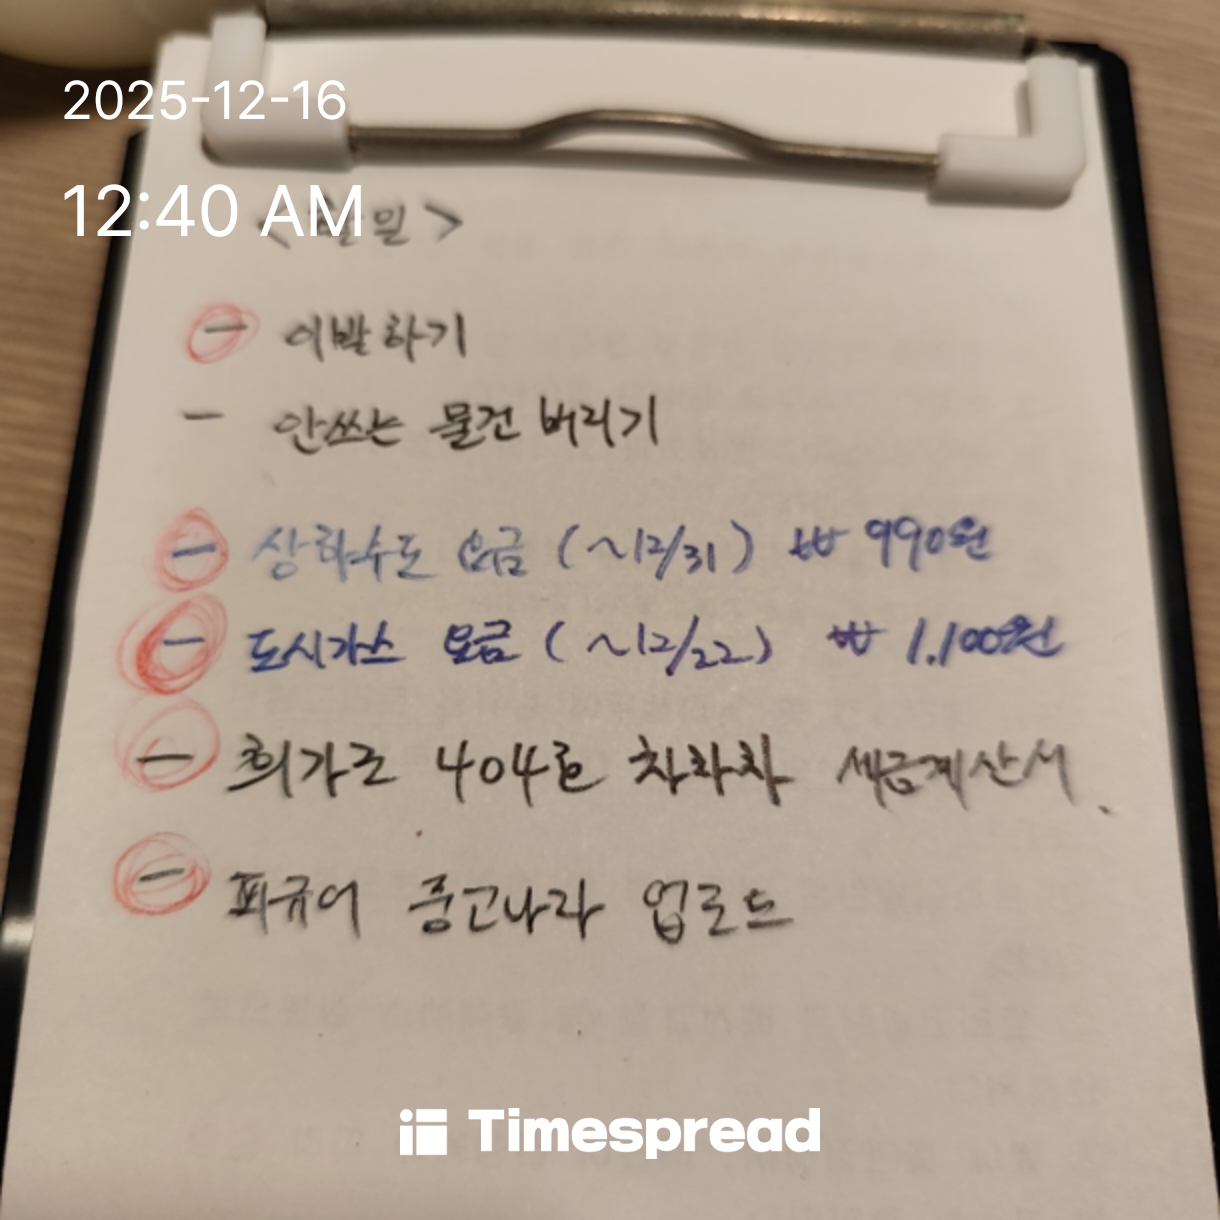 2025-12-16
12:40 AM
< 일 >
- 이발하기
- 안쓰는 물건 버리기
- 상하수도 요금 (~12/31) ₩ 990원
- 도시가스 요금 (~12/22) ₩ 1.100원
- 희가로 404호 차차차 세금계산서.
- 피규어 중고나라 업로드
Timespread